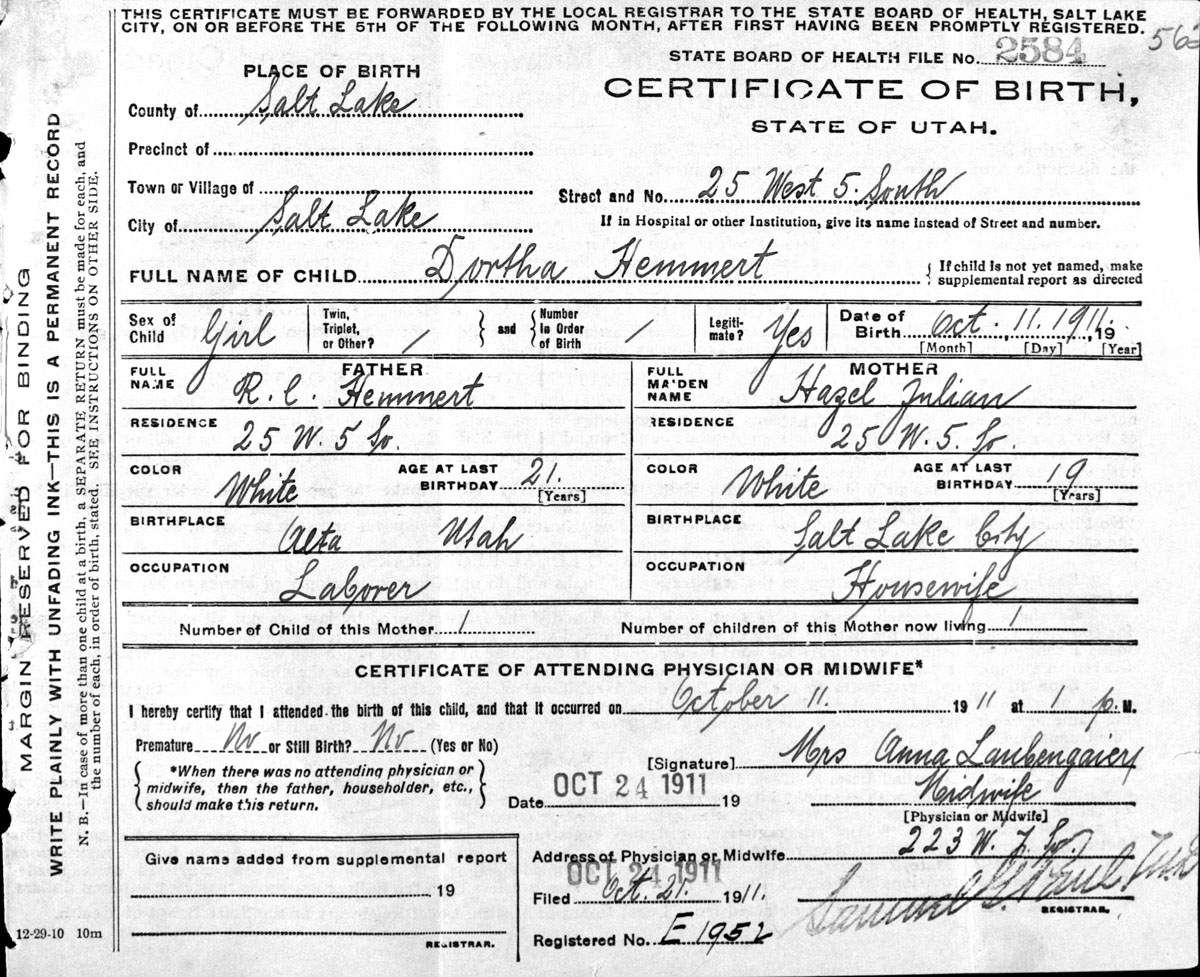 THIS CERTIFICATE MUST BE FORWARDED BY THE LOCAL REGISTRAR TO THE STATE BOARD OF HEALTH, SALT LAKE
CITY, ON OR BEFORE THE 5TH OF THE FOLLOWING MONTH, AFTER FIRST HAVING BEEN PROMPTLY REGISTERED.
STATE BOARD OF HEALTH FILE No. 2584
PLACE OF BIRTH
CERTIFICATE OF BIRTH,
STATE OF UTAH.
County of Salt Lake
Precinct of
Town or Village of
Street and No. 25 West 5. South
City of Salt Lake
If in Hospital or other Institution, give its name instead of Street and number.
FULL NAME OF CHILD Dortha Hemmert
{ If child is not yet named, make
supplemental report as directed
Sex of Child Girl
Twin, Triplet, or Other? /
and
Number in Order of Birth /
Legitimate? Yes
Date of Birth Oct. 11. 1911. 19
[Month] [Day] [Year]
FATHER
FULL NAME R. C. Hemmert
RESIDENCE 25 W. 5 So.
COLOR White
AGE AT LAST BIRTHDAY 21. [Years]
BIRTHPLACE Alta Utah
OCCUPATION Laborer
MOTHER
FULL MAIDEN NAME Hazel Julian
RESIDENCE 25 W. 5 So.
COLOR White
AGE AT LAST BIRTHDAY 19 [Years]
BIRTHPLACE Salt Lake City
OCCUPATION Housewife
Number of Child of this Mother 1
Number of children of this Mother now living 1
CERTIFICATE OF ATTENDING PHYSICIAN OR MIDWIFE*
I hereby certify that I attended the birth of this child, and that it occurred on October 11. 1911 at 1 p. M.
Premature No or Still Birth? No (Yes or No)
*When there was no attending physician or
midwife, then the father, householder, etc.,
should make this return.
[Signature] Mrs Anna
Date OCT 24 1911 19
Midwife
[Physician or Midwife]
Address of Physician or Midwife 223 W. 7 So.
OCT 24 1911
Filed Oct. 21. 1911.
Samuel G. Paul
REGISTRAR.
Registered No. E 1952
Give name added from supplemental report
19
REGISTRAR.
12-29-10 10m
MARGIN RESERVED FOR BINDING
WRITE PLAINLY WITH UNFADING INK—THIS IS A PERMANENT RECORD
N. B.—In case of more than one child at a birth, a SEPARATE RETURN must be made for each, and
the number of each, in order of birth, stated. SEE INSTRUCTIONS ON OTHER SIDE.